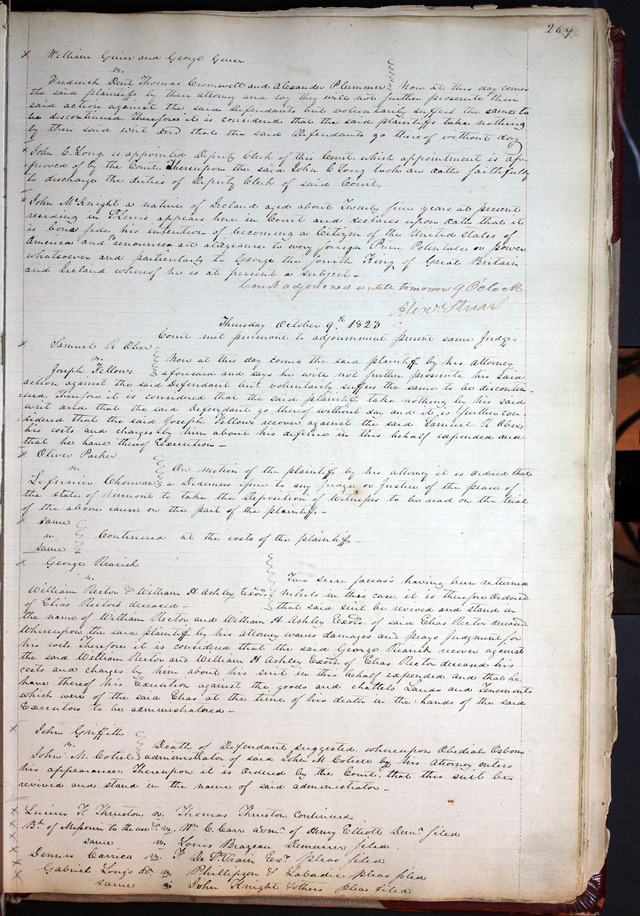 269
William Grier and George Grier
vs.
Frederick Dent Thomas Cromwell and Alexander Plummer. Now at this day comes
the said plaintiffs by their attorney and say they will not further prosecute their
said action against the said Defendants but voluntarily suffers the same to
be discontinued. Therefore it is considered that the said plaintiffs take nothing
by their said writ and that the said Defendants go thereof without day
John C. Long, is appointed Deputy Clerk of this Court, which appointment is ap-
proved of by the Court. Thereupon the said John C Long took an oath faithfully
to discharge the duties of Deputy Clerk of said Court,
John McKnight a native of Ireland aged about Twenty five years, at present
residing in St Louis appears here in Court and declares upon oath that it
is bona fide his intention of becoming a Citizen of the United States of
America and renounces all allegiance to every foreign Prince, Potentate or power
whatsoever and particularly to George the fourth King of Great Britain
and Ireland whereof he is at present a subject.
Court adjourned until tomorrow 9 OClock
Alexr. Stuart
Thursday October 9th 1823
Court met pursuant to adjournment present same Judge
Samuel R. Ober
vs.
Joseph Fellows
Now at this day comes the said plaintiff by his attorney
aforesaid and says he will not further prosecute his said
action against the said Defendant but voluntarily suffers the same to be discontin-
ued, therefore it is considered that the said plaintiff take nothing by his said
writ and that the said Defendant go thereof without day and it is further con-
sidered that the said Joseph Fellows recover against the said Samuel R Ober
his costs and charges by him about his defence in this behalf expended and
that he have thereof Execution—
Oliver Parker
vs
On motion of the plaintiff by his attorney it is ordered that
a Dedimus issue to any Judge or Justice of the peace of
the state of Vermont to take the Deposition of Witnesses to be read on the trial
of the above cause on the part of the plaintiff.—
Same
vs
Same
Continued at the costs of the plaintiff.
George Rearick
vs.
William Rector & William H Ashley Exors.
of Elias Rector deceased—
Two scire facias's having been returned
nihils in this case it is therefore Ordered
that said suit be revived and stand in
the name of William Rector and William H. Ashley Exors. of said Elias Rector deceased
Whereupon the said plaintiff by his attorney waives damages and prays Judgment for
his costs Therefore it is considered that the said George Rearick recover against
the said William Rector and William H Ashley Exors. of Elias Rector deceased his
costs and charges by him about his suit in this behalf expended and that he
have thereof his Execution against the goods and chattels Lands and Tenements
which were of the said Elias at the time of his death in the hands of the said
Executors to be administered.—
John Griffith
vs.
John M. Cotrel
Death of Defendant suggested, whereupon Obediah Osborn
administrator of said John M Cotrell by his Attorney enters
his appearance. Thereupon it is Ordered by the Court, that this suit be
revived and stand in the name of said administrator—
Lucius F. Thruston vs. Thomas Thruston continued
Bk. of Missouri to the use &c. vs. Wm C. Carr Admr. of Henry Elliott Demr. filed
same vs Louis Brazeau Demurrer filed
Dennis Carrica vs F. De St Vrain Exr. pleas filed
Gabriel Long &c vs Phillipson & Labadie pleas filed
same vs John Knight & others pleas filed